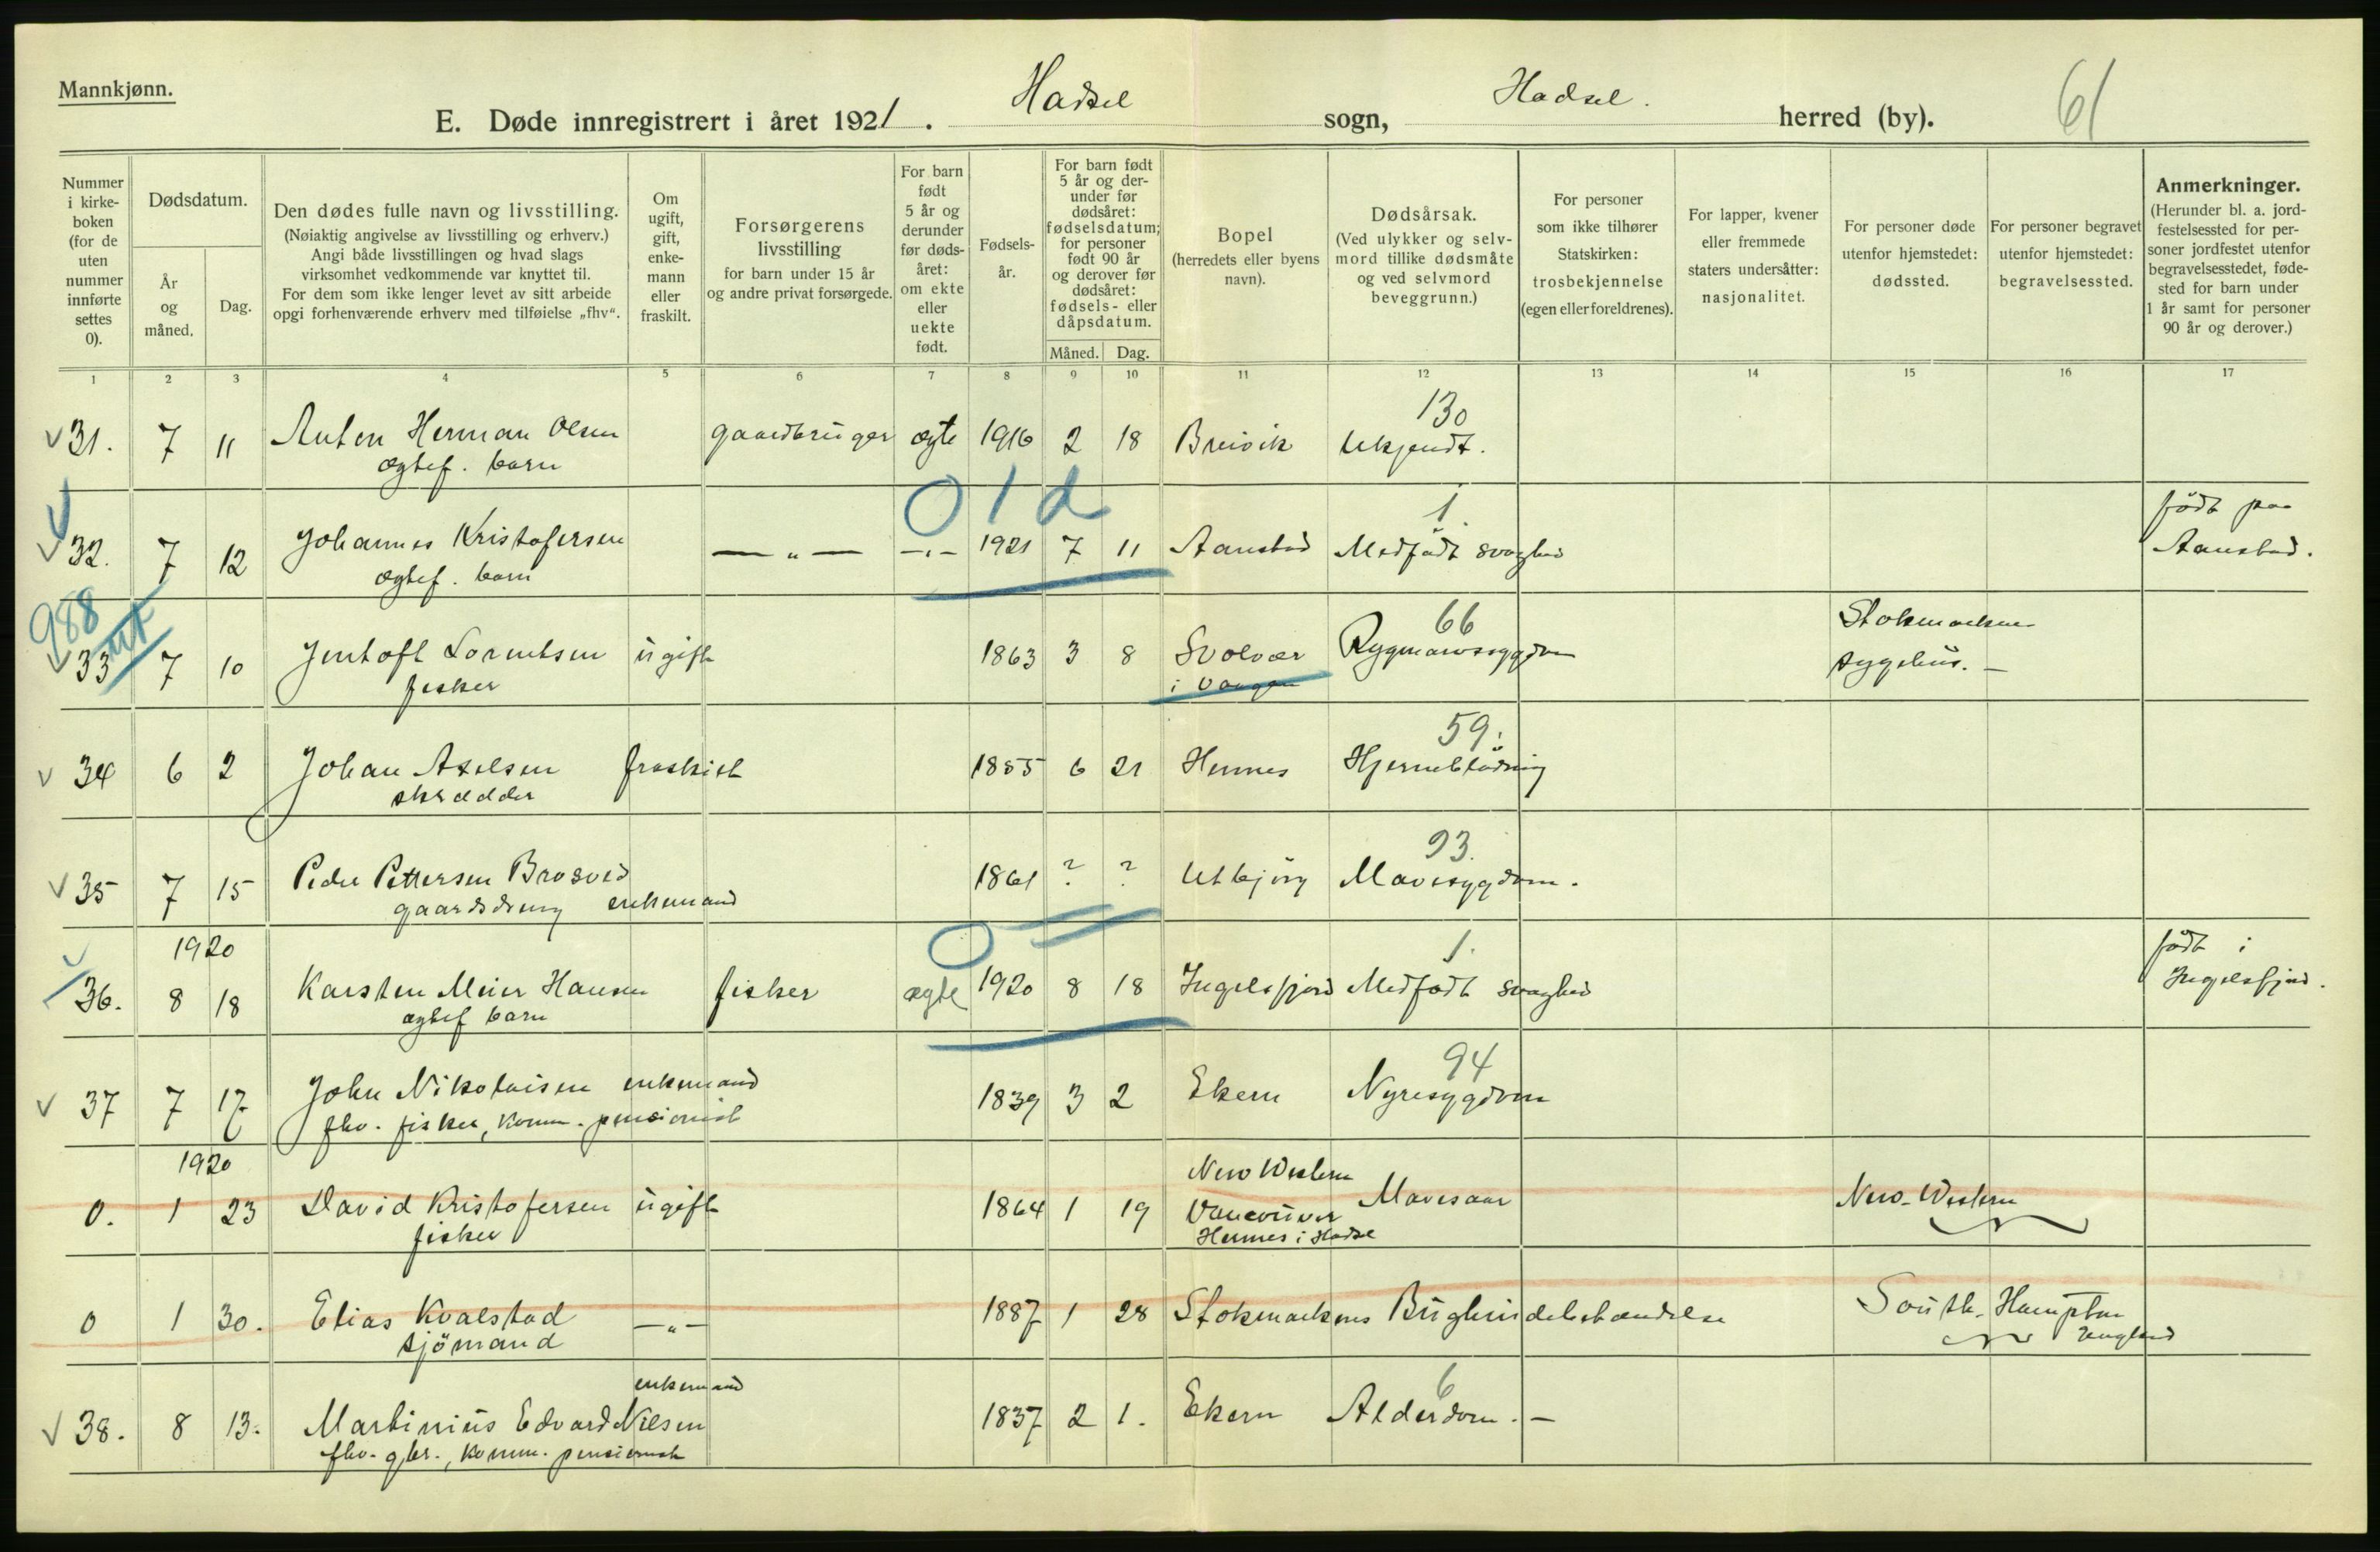 Mannkjønn.
E. Døde innregistrert i året 1921. Hadsel sogn, Hadsel. herred (by). 61
Nummer i kirke-boken (for de uten nummer innførte settes 0).
Dødsdatum.
År og måned.
Dag.
Den dødes fulle navn og livsstilling.
(Nøiaktig angivelse av livsstilling og erhverv.)
Angi både livsstillingen og hvad slags
virksomhet vedkommende var knyttet til.
For dem som ikke lenger levet av sitt arbeide
opgi forhenværende erhverv med tilføielse „fhv“.
Om ugift, gift, enke-mann eller fraskilt.
Forsørgerens
livsstilling
for barn under 15 år
og andre privat forsørgede.
For barn født 5 år og derunder før døds-året: om ekte eller uekte født.
Fødsels-år.
For barn født 5 år og der-under før dødsåret: fødselsdatum; for personer født 90 år og derover før dødsåret: fødsels- eller dåpsdatum.
Måned. Dag.
Bopel
(herredets eller byens navn).
Dødsårsak.
(Ved ulykker og selv-mord tillike dødsmåte og ved selvmord beveggrunn.)
For personer som ikke tilhører Statskirken: trosbekjennelse (egen eller foreldrenes).
For lapper, kvener eller fremmede staters undersåtter: nasjonalitet.
For personer døde utenfor hjemstedet: dødssted.
For personer begravet utenfor hjemstedet: begravelsessted.
Anmerkninger.
(Herunder bl. a. jord-festelsessted for per-soner jordfestet utenfor begravelsesstedet, føde-sted for barn under 1 år samt for personer 90 år og derover.)
1 2 3 4 5 6 7 8 9 10 11 12 13 14 15 16 17
130
31. 7 11 Anton Herman Olsen gaardbruger ægte 1916 2 18 Breivik Ukjendt.
ægtef. barn
0 1 d
1 født paa
32. 7 12 Johannes Kristofersen — „ — — „ — 1921 7 11 Aanstad Medfødt svaghed Aanstad.
ægtef. barn
988
66 Stokmarknes
33 7 10 Jentoft Lorentsen ugift 1863 3 8 Svolvær Rygmarvssygdom sygehus. —
fisker i Vaagan
59.
34 6 2 Johan Axelsen fraskilt 1855 6 21 Hennes Hjerneblødning
skrædder
93.
35 7 15 Peder Pettersen Brosvid 1861 ? ? Utbjörg Mavesygdom.
gaardsdreng enkemand
1920 0 1. født i
36. 8 18 Karsten Meier Hansen fisker ægte 1920 8 18 Ingelsfjord Medfødt svaghed Ingelsfjord.
ægtef barn
94
37 7 17 John Nikolaisen enkemand 1839 3 2 Ekern Nyresygdom
fhv. fisker, komm. pensionist
1920 New Western
0. 1 23 David Kristofersen ugift 1864 1 19 Vancouver Mavesaar New-Western
fisker Hennes i Hadsel
0 1 30. Elias Kvalstad — „ — 1887 1 28 Stokmarknes Bughindebetændelse South-Hampton
sjömand England
enkemand 6
38. 8 13. Martinius Edvard Nilsen 1837 2 1. Ekern Alderdom. —
fhv. gbr., komm. pensionist